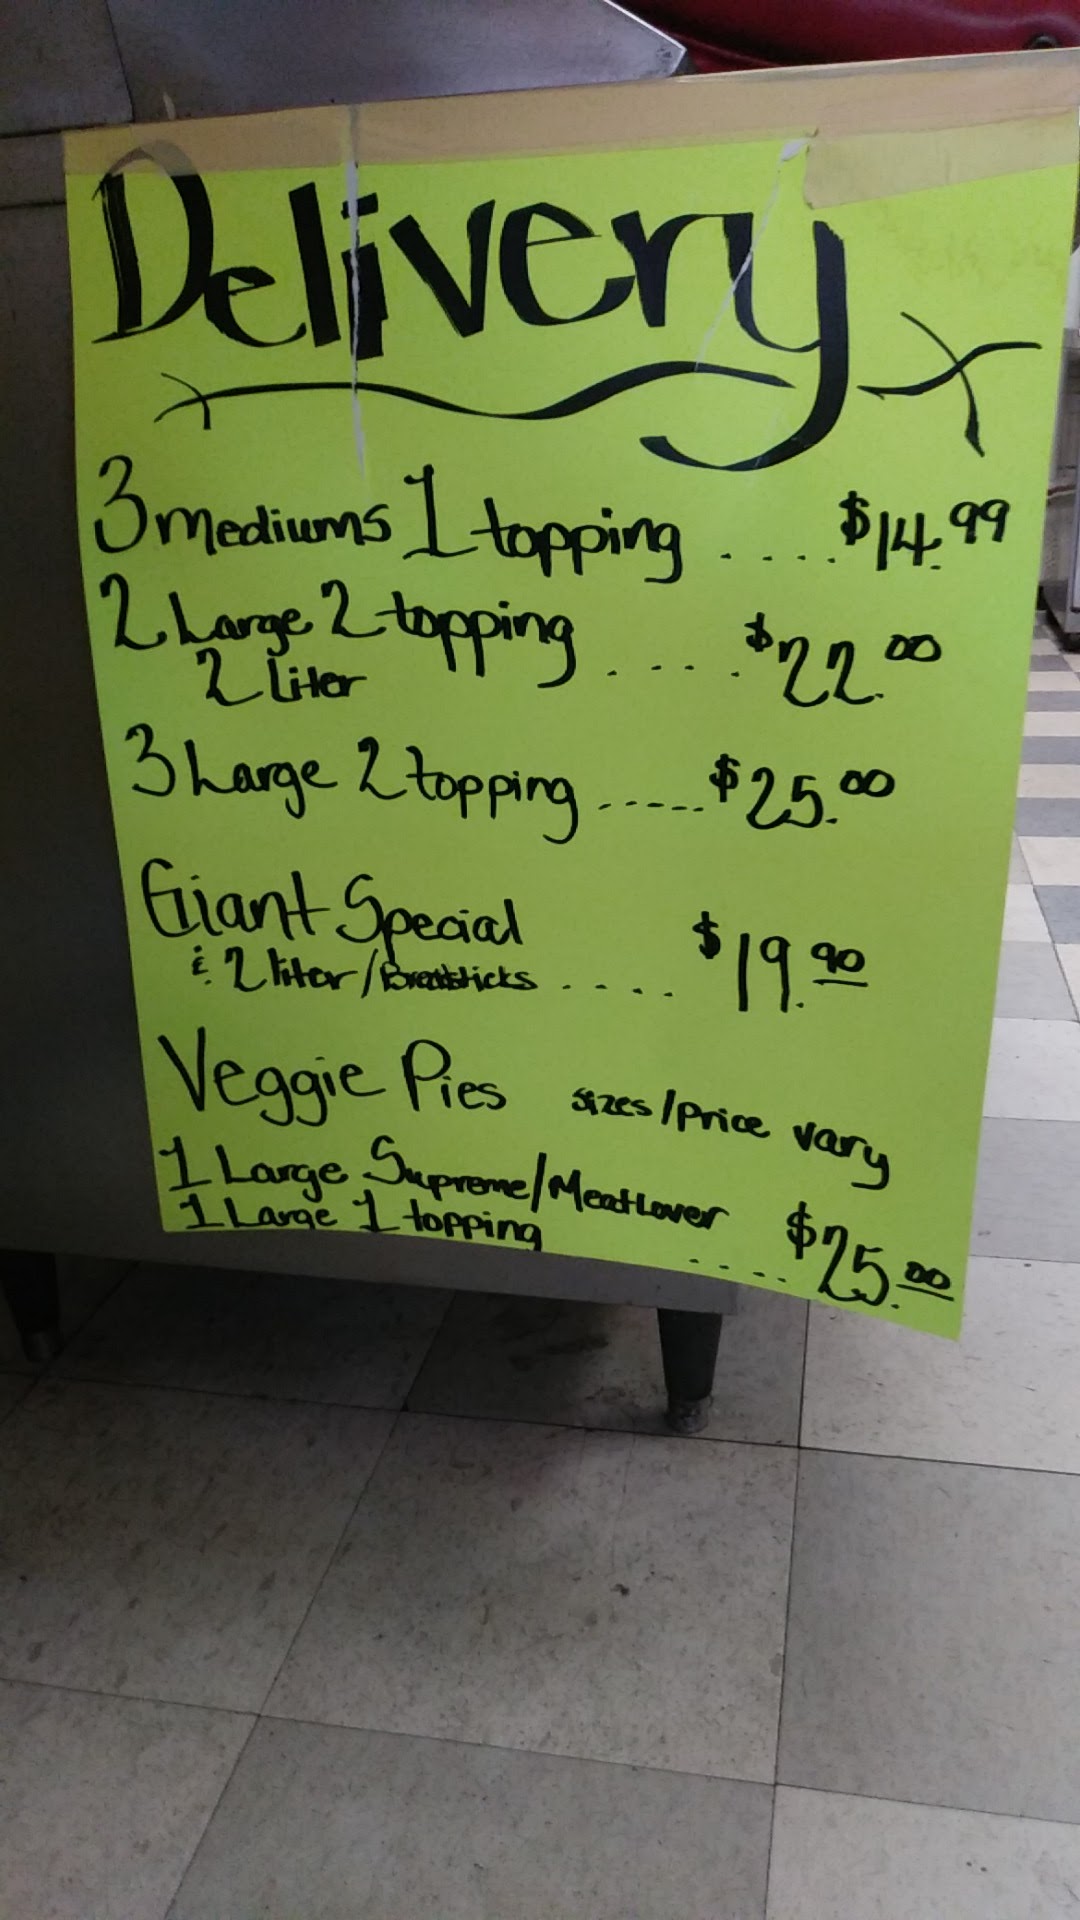 Delivery
3 mediums 1 topping .... $14.99
2 Large 2 topping .... $22.00
2 liter
3 Large 2 topping ..... $25.00
Giant Special
& 2 liter/Breadsticks .... $19.90
Veggie Pies sizes/price vary
1 Large Supreme/MeatLover
1 Large 1 topping .... $25.00